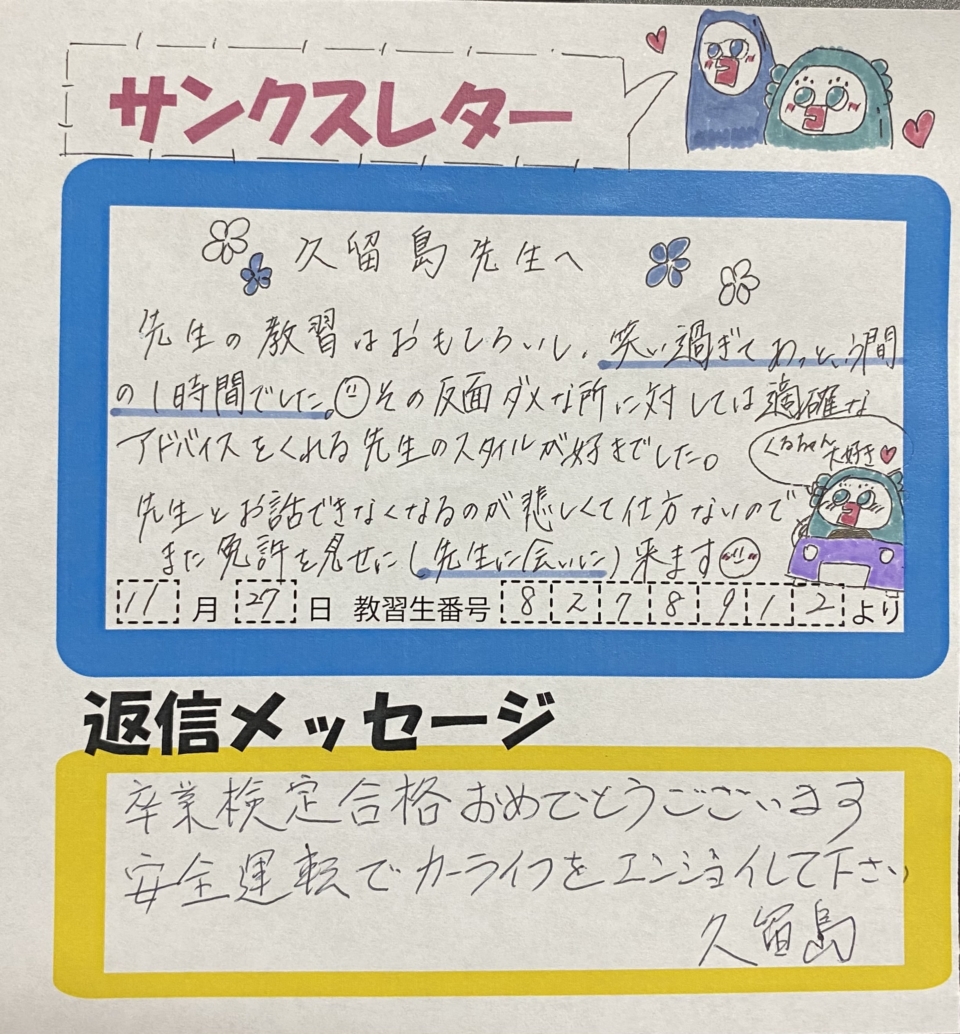 サンクスレター
久留島先生へ
先生の教習はおもしろいし、笑い過ぎてあっという間
の1時間でした。その反面ダメな所に対しては適確な
アドバイスをくれる先生のスタイルが好きでした。
くるちゃん
大好き
先生とお話できなくなるのが悲しくて仕方ないので
また免許を見せに(先生に会いに)来ます
11月27日 教習生番号8278912より
返信メッセージ
卒業検定合格おめでとうございます
安全運転でカーライフをエンジョイして下さい
久留島